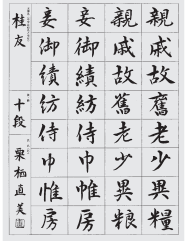 親戚故舊老少異糧
親戚故舊老少異粮
妾御績紡侍巾帷房
妾御績紡侍巾帷房
桂友 十段 栗栖直美